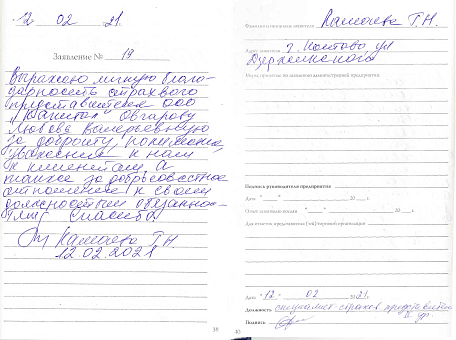 12 02 21.
Заявление № 19
Выражаю личную благо-
дарность страхвого
представителя ООО
"Капитал"
Любовь Валерьевную
за доброту, понимание,
уважения к нам
к клиентам а
также за добросовестное
отношение к своим
должностным обязаннос-
тям! Спасибо
Т.Н.
12.02.2021
38
Фамилия и инициалы заявителя Т.Н.
Адрес заявителя г. Котово, ул
Дзержинского
Меры, принятые по заявлению администрацией предприятия:
Подпись руководителя предприятия
Дата " " 20 г.
Ответ заявителю послан " " 20 г.
Для отметок вышестоящей торговой организации
Дата "12" 02 2021.
Должность специалист-страхов представитель
II ур.
Подпись
40